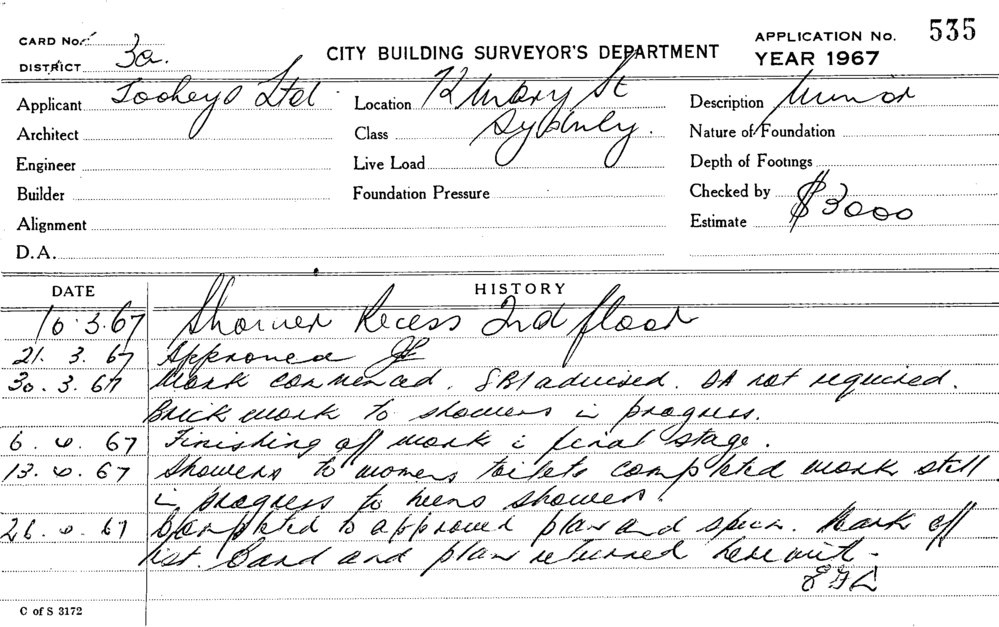 CARD No. 3a.
DISTRICT
CITY BUILDING SURVEYOR'S DEPARTMENT
APPLICATION No. 535
YEAR 1967
Applicant Tooheys Ltd
Location Mary St
Description Minor
Architect
Class Sydney.
Nature of Foundation
Engineer
Live Load
Depth of Footings
Builder
Foundation Pressure
Checked by
Alignment
Estimate $3000
D.A.
DATE HISTORY
16.3.67 Shower Recess 2nd floor
21. 3. 67 Approved
30. 3. 67 Work commenced. SBI advised. DA not required.
Brick work to showers in progress.
6. 4. 67 Finishing off work in final stage.
13. 4. 67 Showers to womens toilets completed work still
in progress to mens showers.
26. 4. 67 Completed to approved plan and specn. Mark off
list. Card and plan returned herewith.
C of S 3172